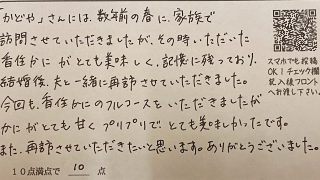 "かどや"さんには、数年前の春に、家族で
訪問させていただきましたが、その時いただいた
香住かに がとても美味しく、記憶に残っており、
結婚後、夫と一緒に再訪させていただきました。
今回も、香住かにのフルコースをいただきましたが
かにがとても甘く プリプリで とても美味しかったです。
また、再訪させていただきたいと思います。ありがとうございました。
10点満点で 10 点
スマホでも投稿
OK!チェック欄
記入後フロント
へお渡し下さい。